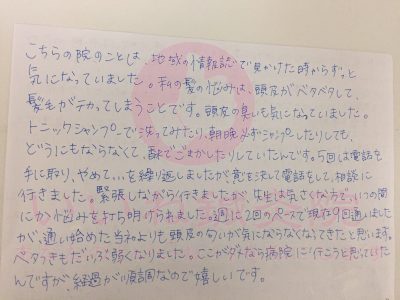 こちらの院のことは、地域の情報誌で見かけた時からずっと
気になっていました。私の髪の悩みは、頭皮がベタベタして、
髪毛がテカってしまうことです。頭皮の臭いも気になっていました。
トニックシャンプーで洗ってみたり、朝晩必ずシャンプーしたりしても、
どうにもならなくて、香水でごまかしたりしていたんです。5回は電話を
手に取り、やめて、、を繰り返しましたが、意を決して電話をして、相談に
行きました。緊張しながら行きましたが、先生は気さくな方で、いつの間
にか悩みを打ち明けられました。週に2回のペースで現在9回通いました
が、通い始めた当初よりも頭皮の匂いが気にならなくなってきたと思います。
ベタつきもだいぶ弱くなりました。ここがダメなら病院に行こうと思っていた
んですが、経過が順調なので嬉しいです。